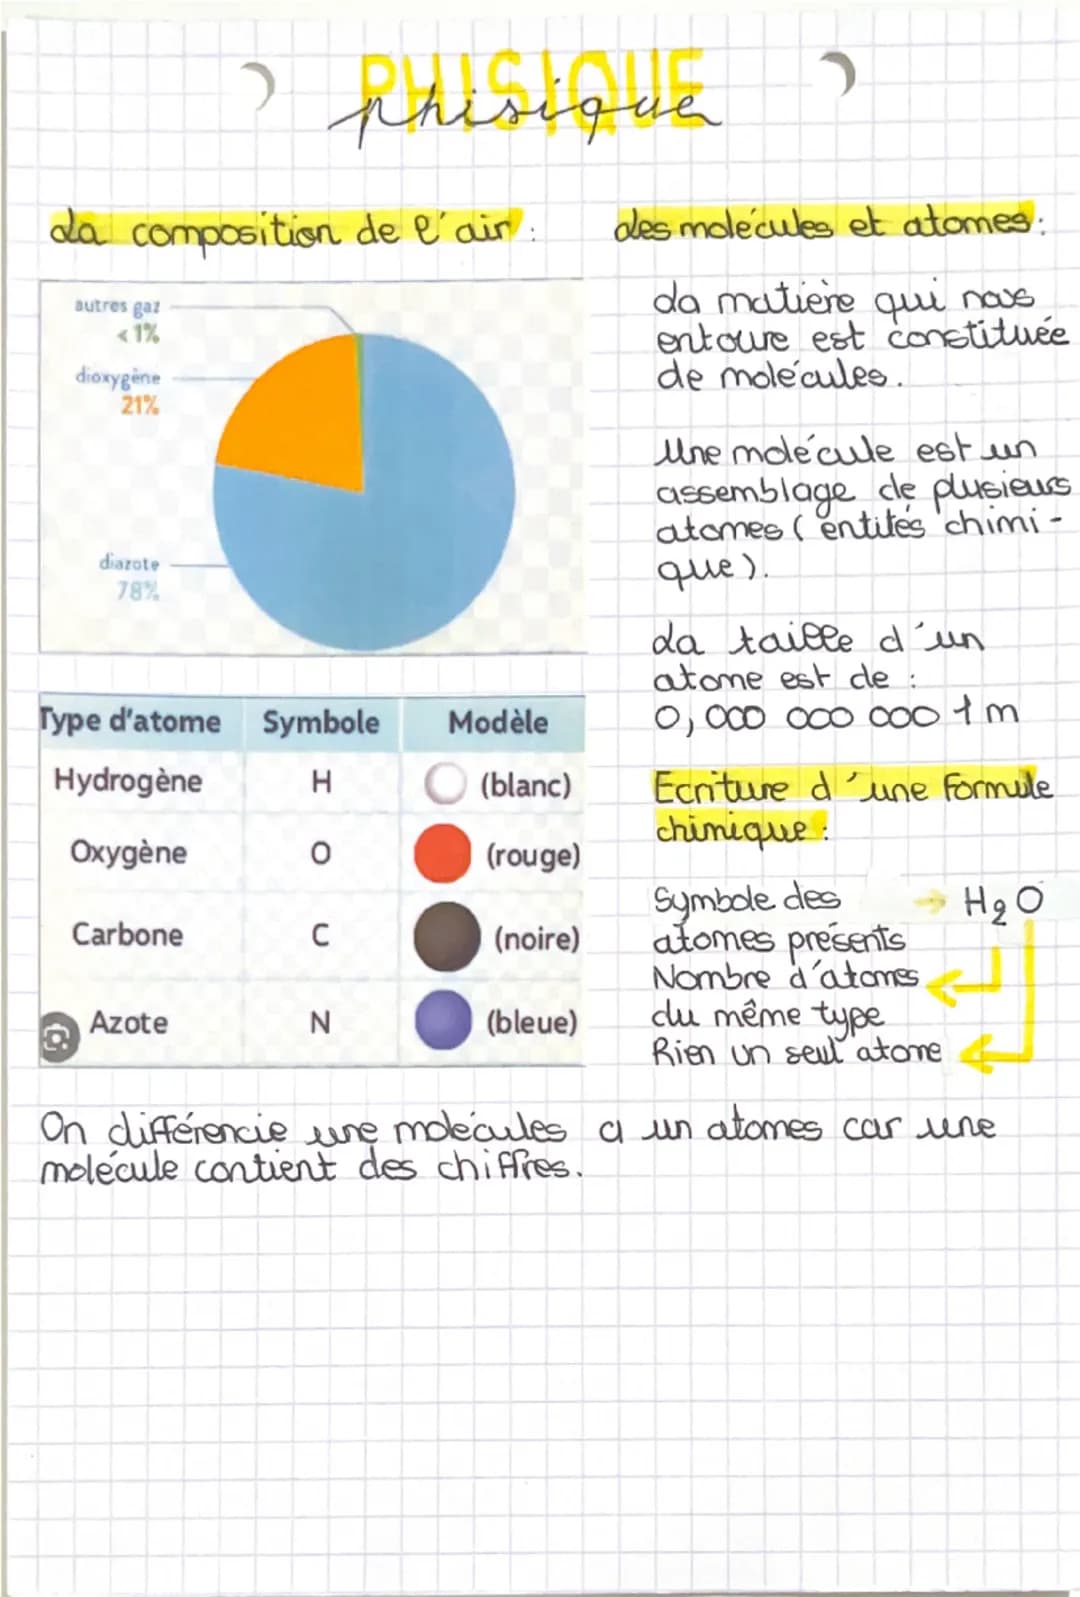 PHISIQUE
phisique
La composition de l'air :
autres gaz
<1%
dioxygène
21%
diazote
78%
Type d'atome Symbole Modèle
Hydrogène H (blanc)
Oxygène O (rouge)
Carbone C (noire)
Azote N (bleue)
Les molécules et atomes :
La matière qui nous
entoure est constituée
de molécules.
Une molécule est un
assemblage de plusieurs
atomes (entités chimi-
que).
La taille d'un
atome est de :
0,000 000 000 1 m
Ecriture d'une Formule
chimique :
Symbole des → H₂O
atomes présents
Nombre d'atomes
du même type
Rien un seul atome
On différencie une molécules a un atomes car une
molécule contient des chiffres.